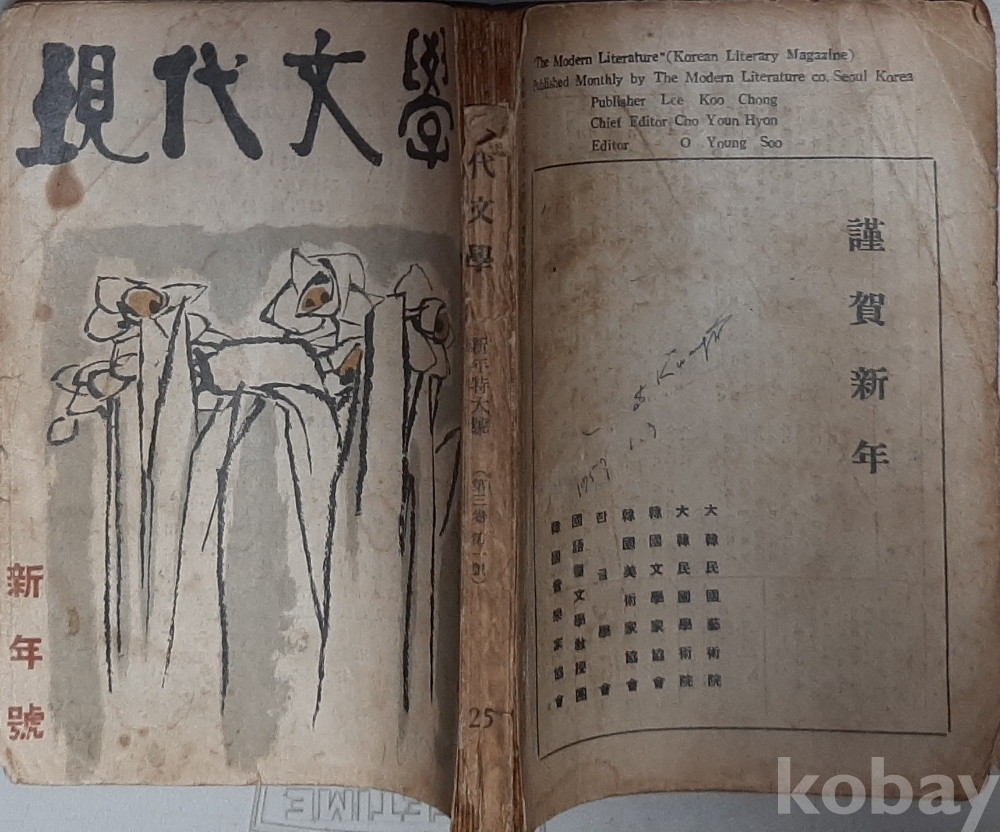 現代文學
新年號
代文學
新年特大號
(第三卷 第一號)
25
"The Modern Literature" (Korean Literary Magazine)
Published Monthly by The Modern Literature co. Seoul Korea
Publisher Lee Koo Chong
Chief Editor Cho Youn Hyon
Editor O Young Soo
謹賀新年
大韓民國藝術院
大韓民國學術院
韓國文學家協會
韓國美術家協會
한글學會
國語國文學敎授團
韓國音樂家協會
1957
kobay